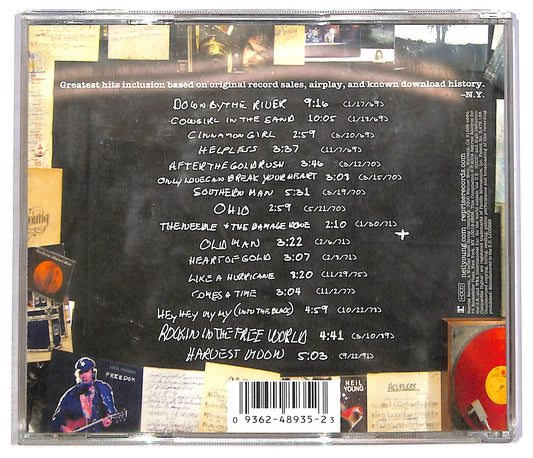 Greatest hits inclusion based on original record sales, airplay, and known download history.
--N.Y.
DOWN BY THE RIVER 9:16 (1/17/69)
COWGIRL IN THE SAND 10:05 (1/17/69)
CINNAMON GIRL 2:59 (3/20/69)
HELPLESS 3:37 (11/7/69)
AFTER THE GOLDRUSH 3:46 (3/12/70)
ONLY LOVE CAN BREAK YOUR HEART 3:08 (3/15/70)
SOUTHERN MAN 5:31 (3/19/70)
OHIO 2:59 (5/21/70)
THE NEEDLE & THE DAMAGE DONE 2:10 (1/30/71)
OLD MAN 3:22 (2/6/71)
HEART OF GOLD 3:07 (2/8/71)
LIKE A HURRICANE 8:20 (11/29/75)
COMES A TIME 3:04 (11/2/77)
HEY, HEY MY MY (INTO THE BLACK) 4:59 (10/22/78)
ROCKIN IN THE FREE WORLD 4:41 (3/10/89)
HARVEST MOON 5:03 (9/22/91)
neilyoung.com repriserecords.com
FREEDOM
NEIL
YOUNG
HELPLESS
0 9362-48935-2 3